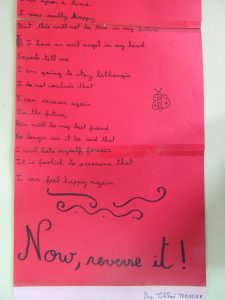 upon a time
I was really happy
But this will not be true in my future
I have an evil angel in my head
Experts tell me
I am going to stay lethargic
I do not conclude that
I can recover again
In the future,
Pain will be my best friend
No longer can it be said that
I will hate myself forever
It is foolish to presume that
I can feel happy again
Now, reverse it!
By Chloé